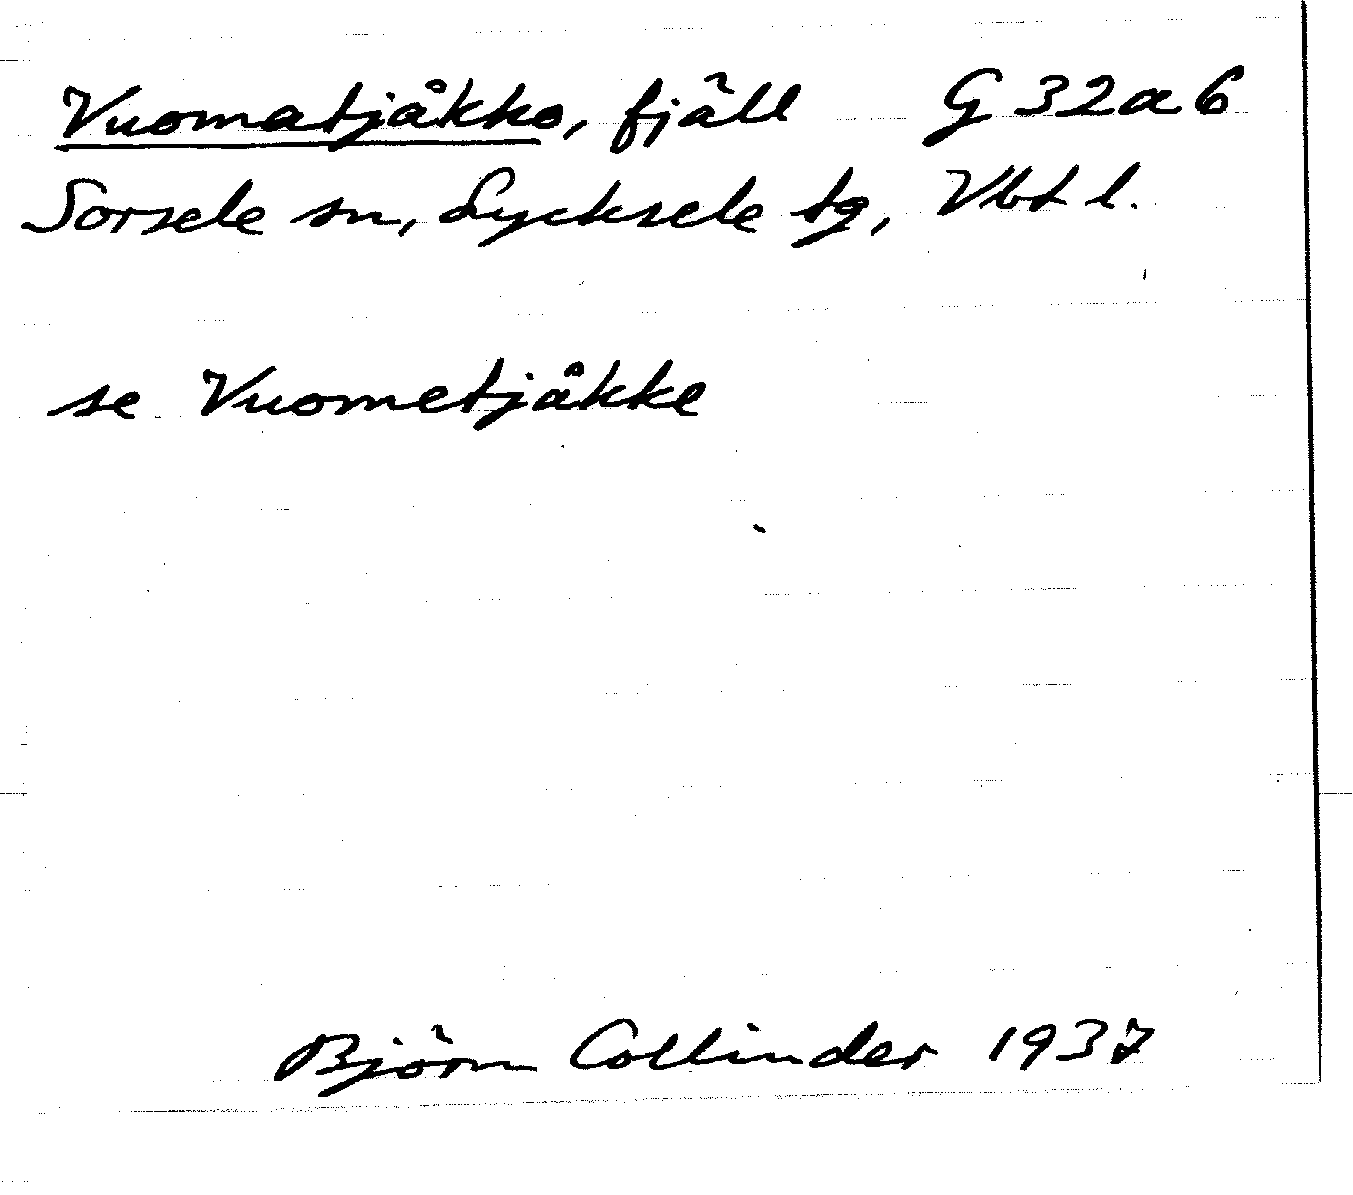 Vuomatjåkko, fjäll G 32a6
Sorsele sn, Lycksele tg, Vbt l.
se Vuometjåkke
Björn Collinder 1937